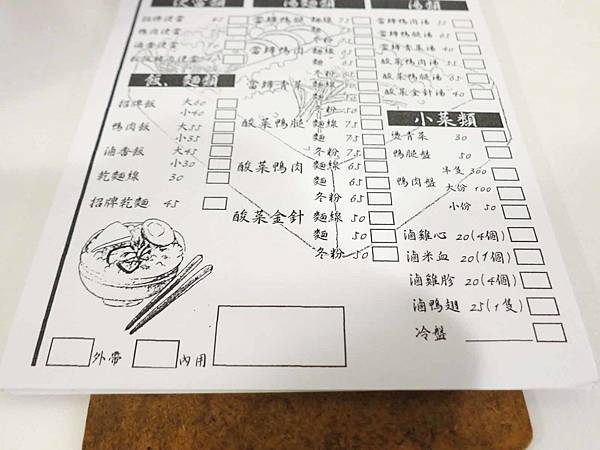 便當類
招牌便當 65
鴨肉便當
滷香便當
飯、麵類
招牌飯 大60
小40
鴨肉飯 大55
小35
滷香飯 大45
小30
乾麵線 30
招牌乾麵 45
外帶
內用
湯麵類
當歸鴨腿 麵線 75
麵 75
冬粉
當歸鴨肉 麵線
麵
冬粉
當歸青菜 麵線
麵
冬粉
酸菜鴨腿 麵線 75
麵 75
冬粉 75
酸菜鴨肉 麵線 65
麵 65
冬粉 65
酸菜金針 麵線 50
麵 50
冬粉 50
湯類
當歸鴨腿湯
當歸鴨肉湯 55
當歸青菜湯 40
酸菜鴨肉湯 55
酸菜鴨腿湯 65
酸菜金針湯 40
小菜類
燙青菜 30
鴨腿盤 50
鴨肉盤 半隻 300
大份 100
小份 50
滷雞心 20(4個)
滷米血 20(1個)
滷雞胗 20(4個)
滷鴨翅 25(1隻)
冷盤